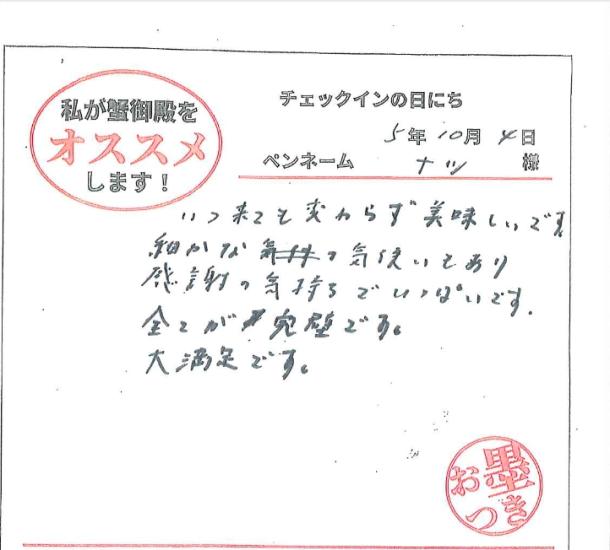 私が蟹御殿を
オススメ
します!
チェックインの日にち
5年10月4日
ペンネーム ナツ 様
いつ来ても変わらず美味しいです。
細かなの気使いもあり
感謝の気持ちでいっぱいです。
全てが完璧です。
大満足です。
お墨
つき